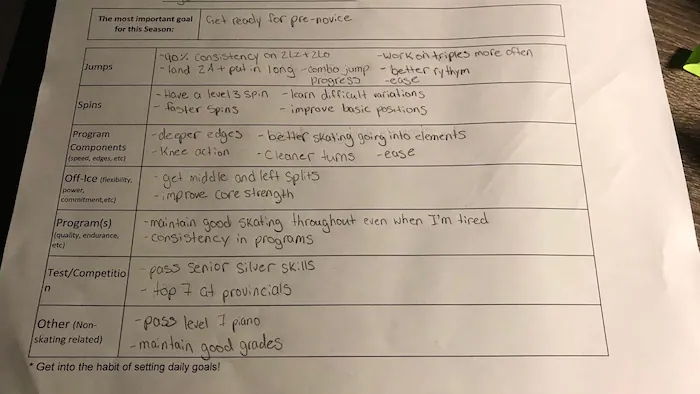 The most important goal for this Season:
Get ready for pre-novice
Jumps
-90% consistency on 2Lz+2Lo
-land 2A + put in long
-combo jump progress
-work on triples more often
-better rythym
-ease
Spins
-Have a level 3 spin
-faster spins
-learn difficult variations
-improve basic positions
Program Components (speed, edges, etc)
-deeper edges
-Knee action
-better skating going into elements
-Cleaner turns
-ease
Off-Ice (flexibility, power, commitment,etc)
-get middle and left splits
-improve core strength
Program(s) (quality, endurance, etc)
-maintain good skating throughout even when I'm tired
-consistency in programs
Test/Competition
-pass senior silver skills
-top 7 at provincials
Other (Non-skating related)
-pass level 7 piano
-maintain good grades
* Get into the habit of setting daily goals!